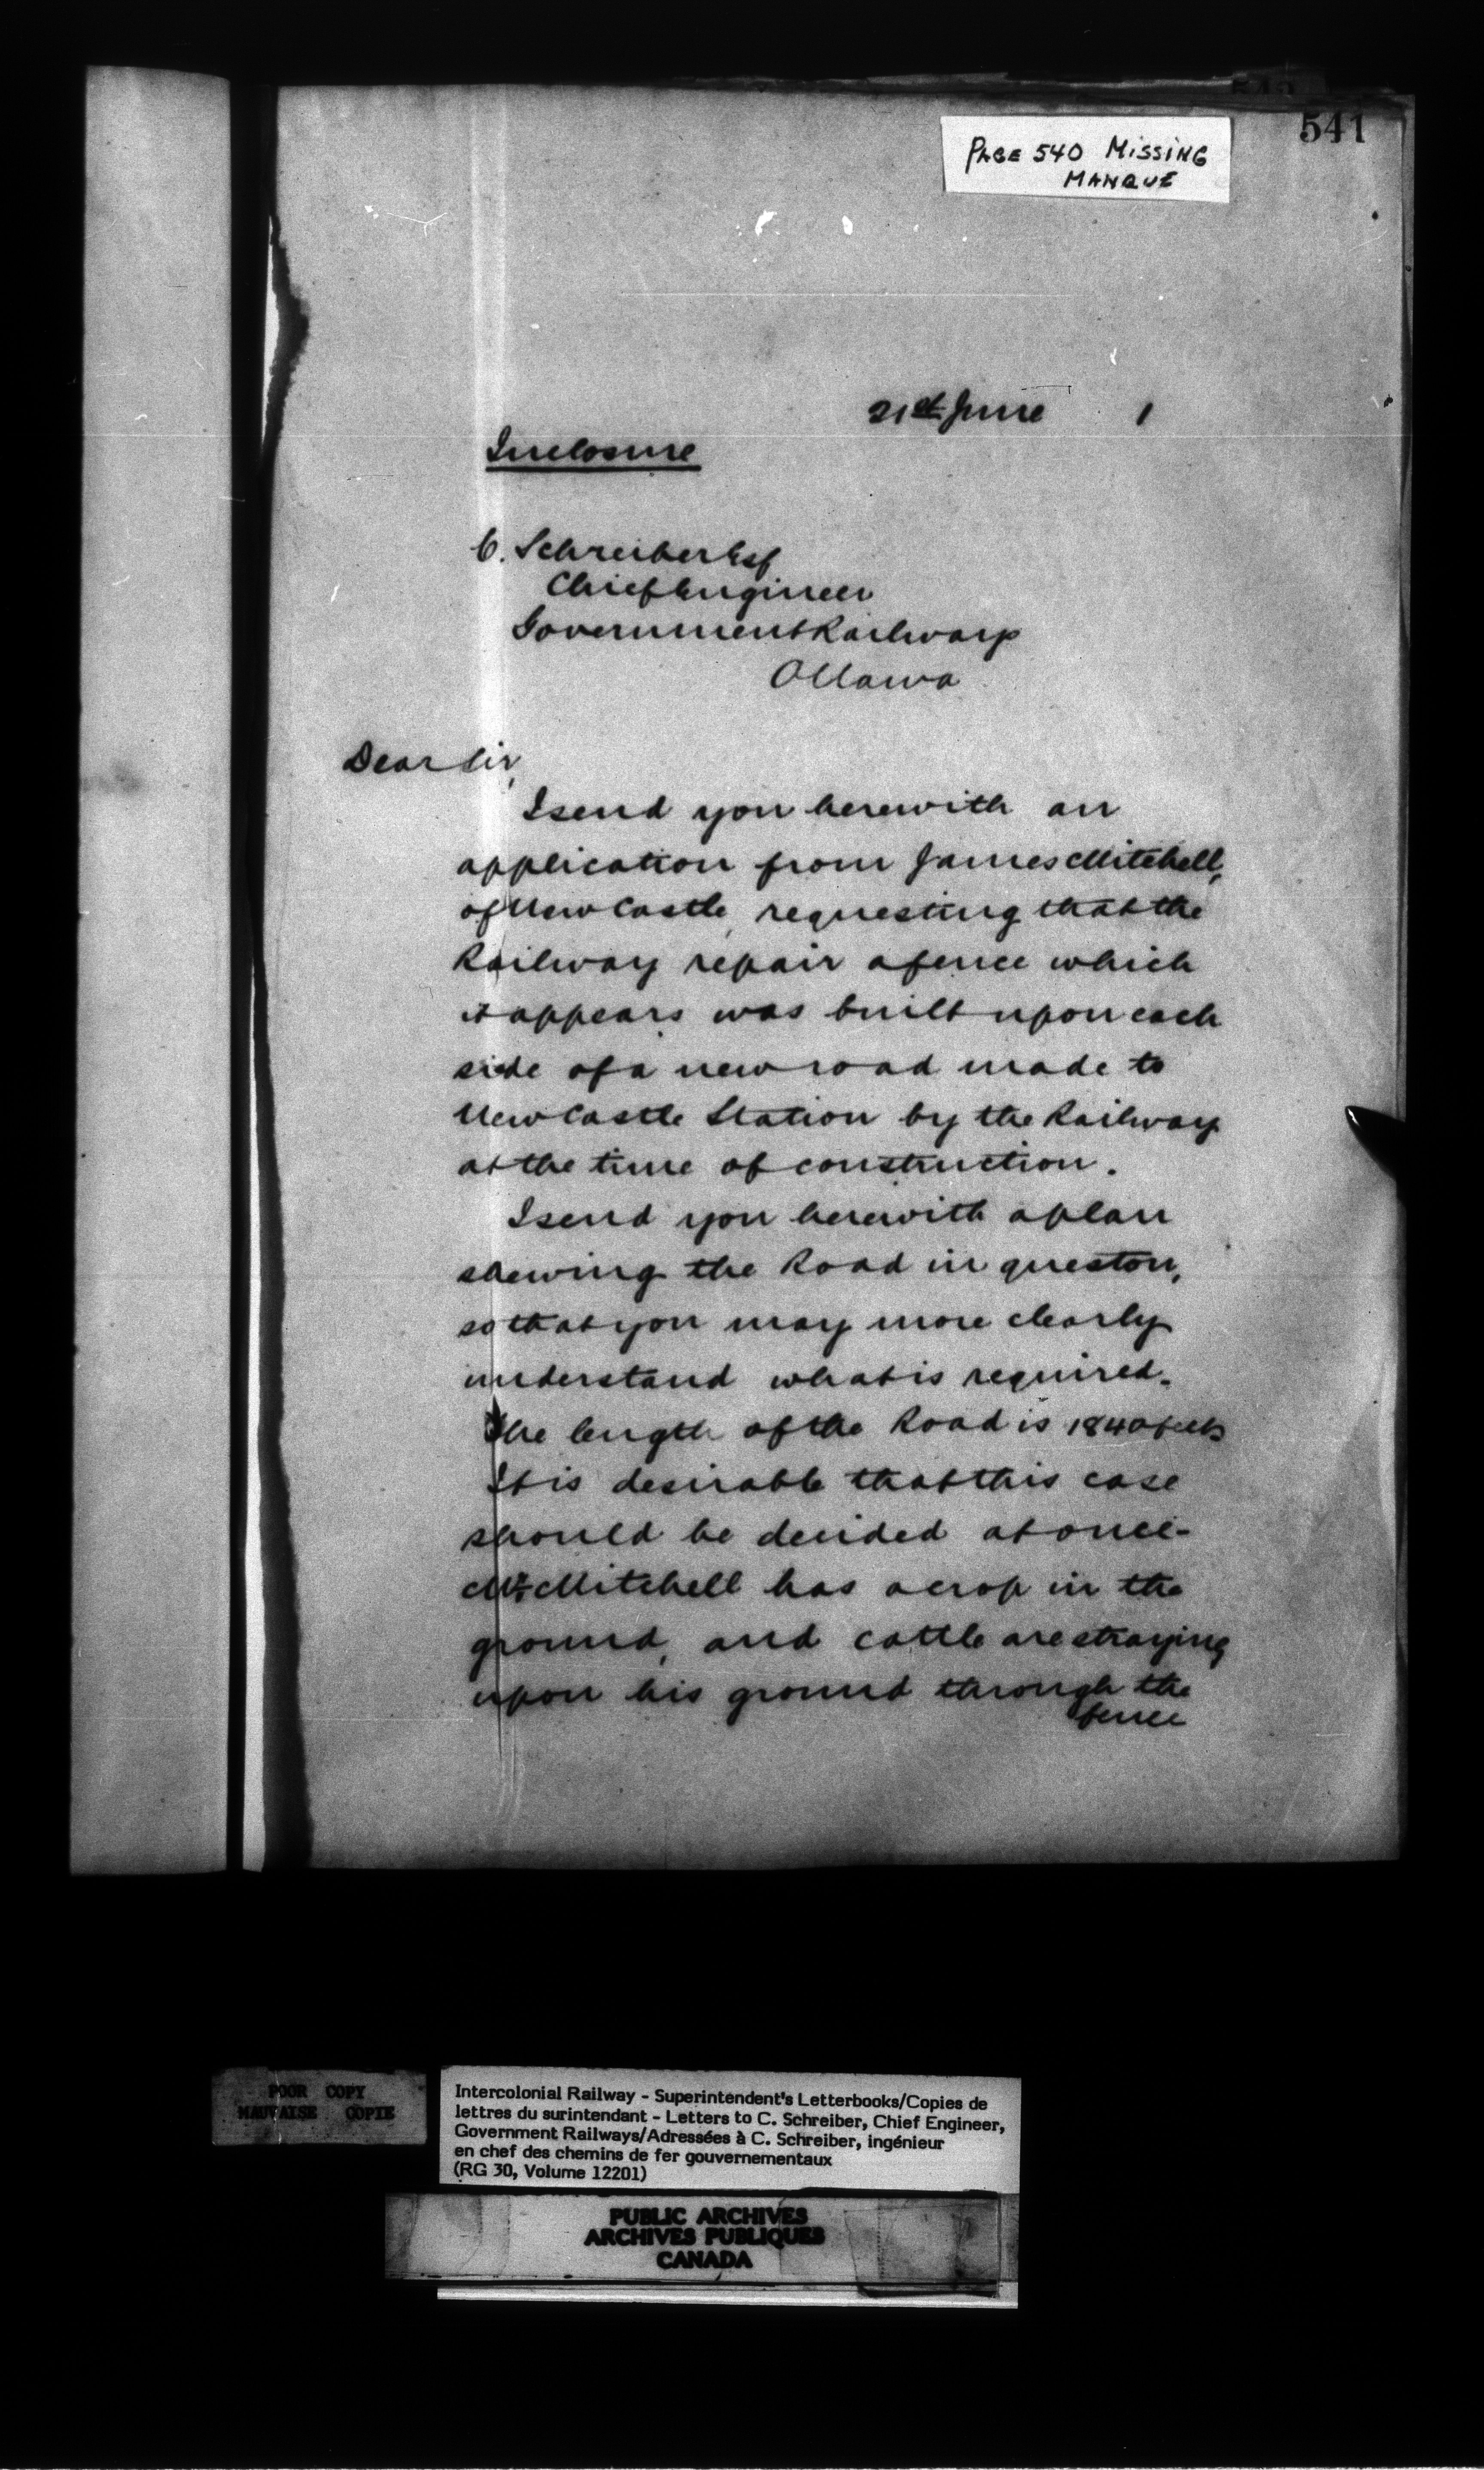 541
PAGE 540 MISSING
MANQUE
21st June 1
Inclosure
C. Schreiber Esq
Chief Engineer
Government Railways
Ottawa
Dear Sir,
I send you herewith an
application from James Mitchell,
of New Castle, requesting that the
Railway repair a fence which
it appears was built upon each
side of a new road made to
New Castle Station by the Railway
at the time of construction.
I send you herewith a plan
shewing the Road in queston,
so that you may more clearly
understand what is required.
The length of the Road is 1840 feet
It is desirable that this case
should be decided at once -
Mr. Mitchell has a crop in the
ground, and cattle are straying
upon his ground through the
fence
POOR COPY
MAUVAISE COPIE
Intercolonial Railway - Superintendent's Letterbooks/Copies de
lettres du surintendant - Letters to C. Schreiber, Chief Engineer,
Government Railways/Adressées à C. Schreiber, ingénieur
en chef des chemins de fer gouvernementaux
(RG 30, Volume 12201)
PUBLIC ARCHIVES
ARCHIVES PUBLIQUES
CANADA